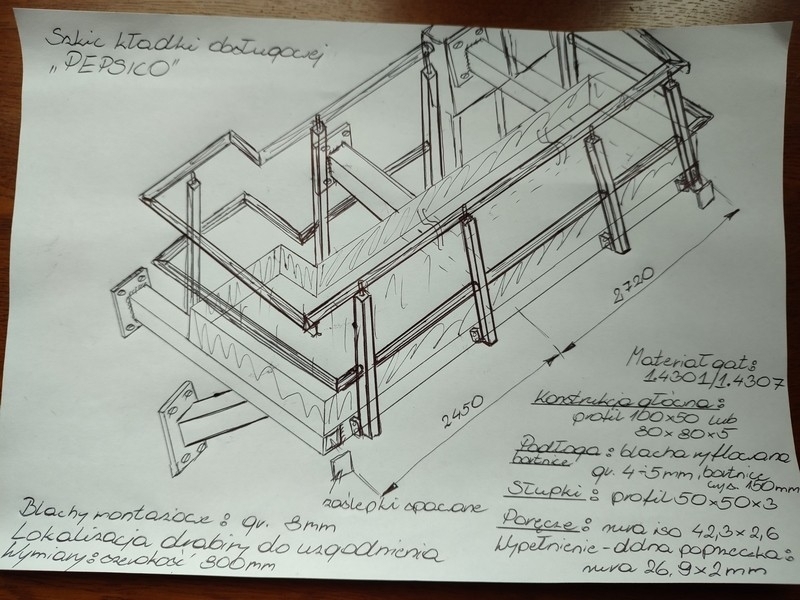 Szkic kładki obsługowej
„PEPSICO"
2720
2450
Materiał gat:
1.4301/1.4307
Konstrukcja główna:
profil 100x50 lub
80x80x5
Podłoga: blacha ryflowana
bortnice gr. 4÷5mm, bortnice
wys. 150mm
Słupki: profil 50x50x3
Poręcze: rura iso 42,3x2,6
Wypełnienie - dolna poprzeczka:
rura 26,9x2mm
zaślepki spawane
Blachy montażowe: gr. 8mm
Lokalizacja drabiny do uzgodnienia
Wymiary: szerokość 800mm